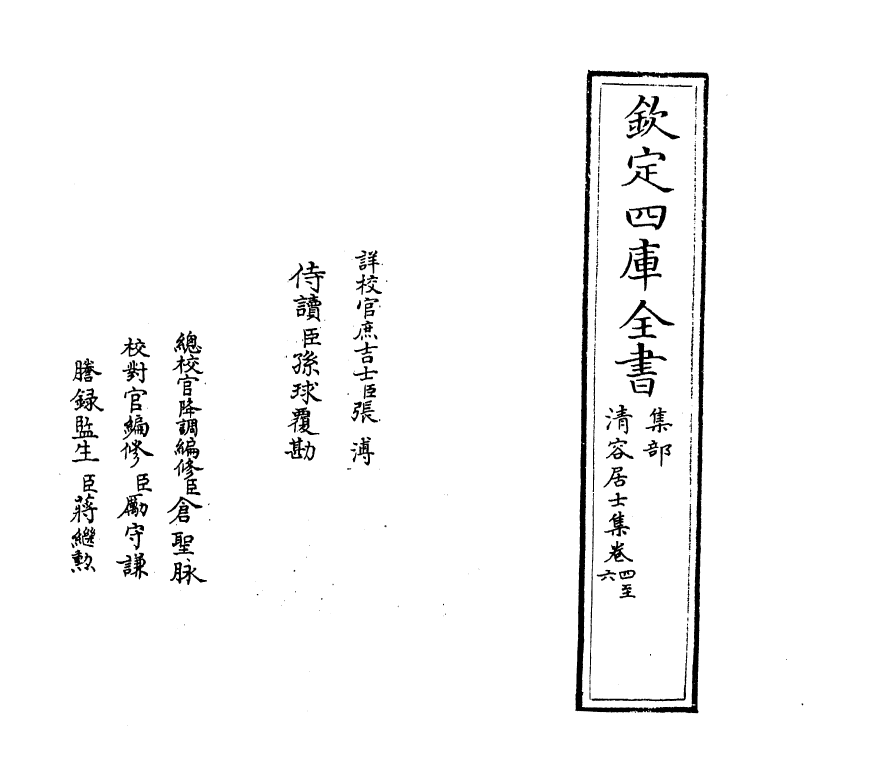 欽定四庫全書
集部
清容居士集卷四至六
詳校官庶吉士臣張溥
侍讀臣孫球覆勘
總校官降調編修臣倉聖脉
校對官編修臣勵守謙
謄録監生臣蔣繼勲